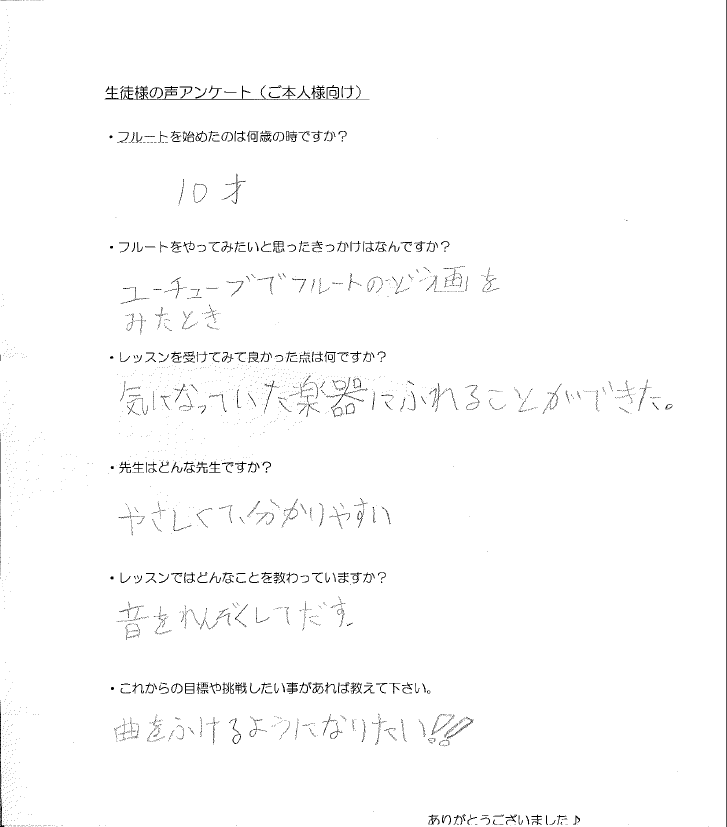 生徒様の声アンケート（ご本人様向け）
・フルートを始めたのは何歳の時ですか？
10才
・フルートをやってみたいと思ったきっかけはなんですか？
ユーチューブでフルートのどう画を
みたとき
・レッスンを受けてみて良かった点は何ですか？
気になっていた楽器にふれることができた。
・先生はどんな先生ですか？
やさしくて、分かりやすい
・レッスンではどんなことを教わっていますか？
音をれんぞくしてだす。
・これからの目標や挑戦したい事があれば教えて下さい。
曲をふけるようになりたい!!
ありがとうございました♪